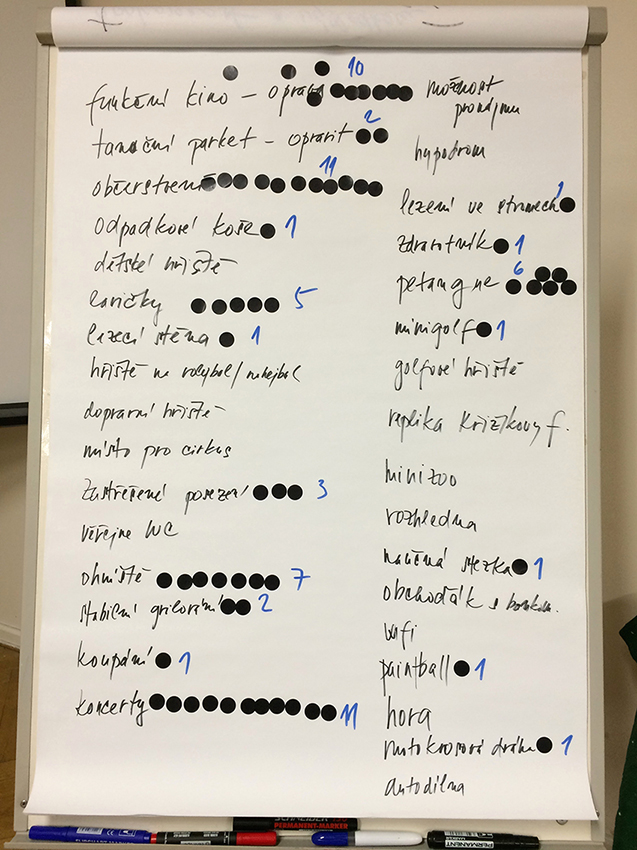 funkční kino – opravit 10
taneční parket – opravit 2
občerstvení 11
odpadkové koše 1
dětské hřiště
lavičky 5
lezecí stěna 1
hřiště na volejbal/nohejbal
dopravní hřiště
místo pro cirkus
zastřešené posezení 3
veřejne WC
ohniště 7
stabilní grilování 2
koupání 1
koncerty 11
možnost
pronájmu
hypodrom
lezení ve stromech 1
zdravotník 1
petangue 6
minigolf 1
golfové hřiště
replika Křižíkovy f.
minizoo
rozhledna
naučná stezka 1
obchoďák s
wifi
paintball 1
hora
motokrosová dráha 1
autodílna
SCHNEIDER
PERMANENT-MARKER
PERMANENT